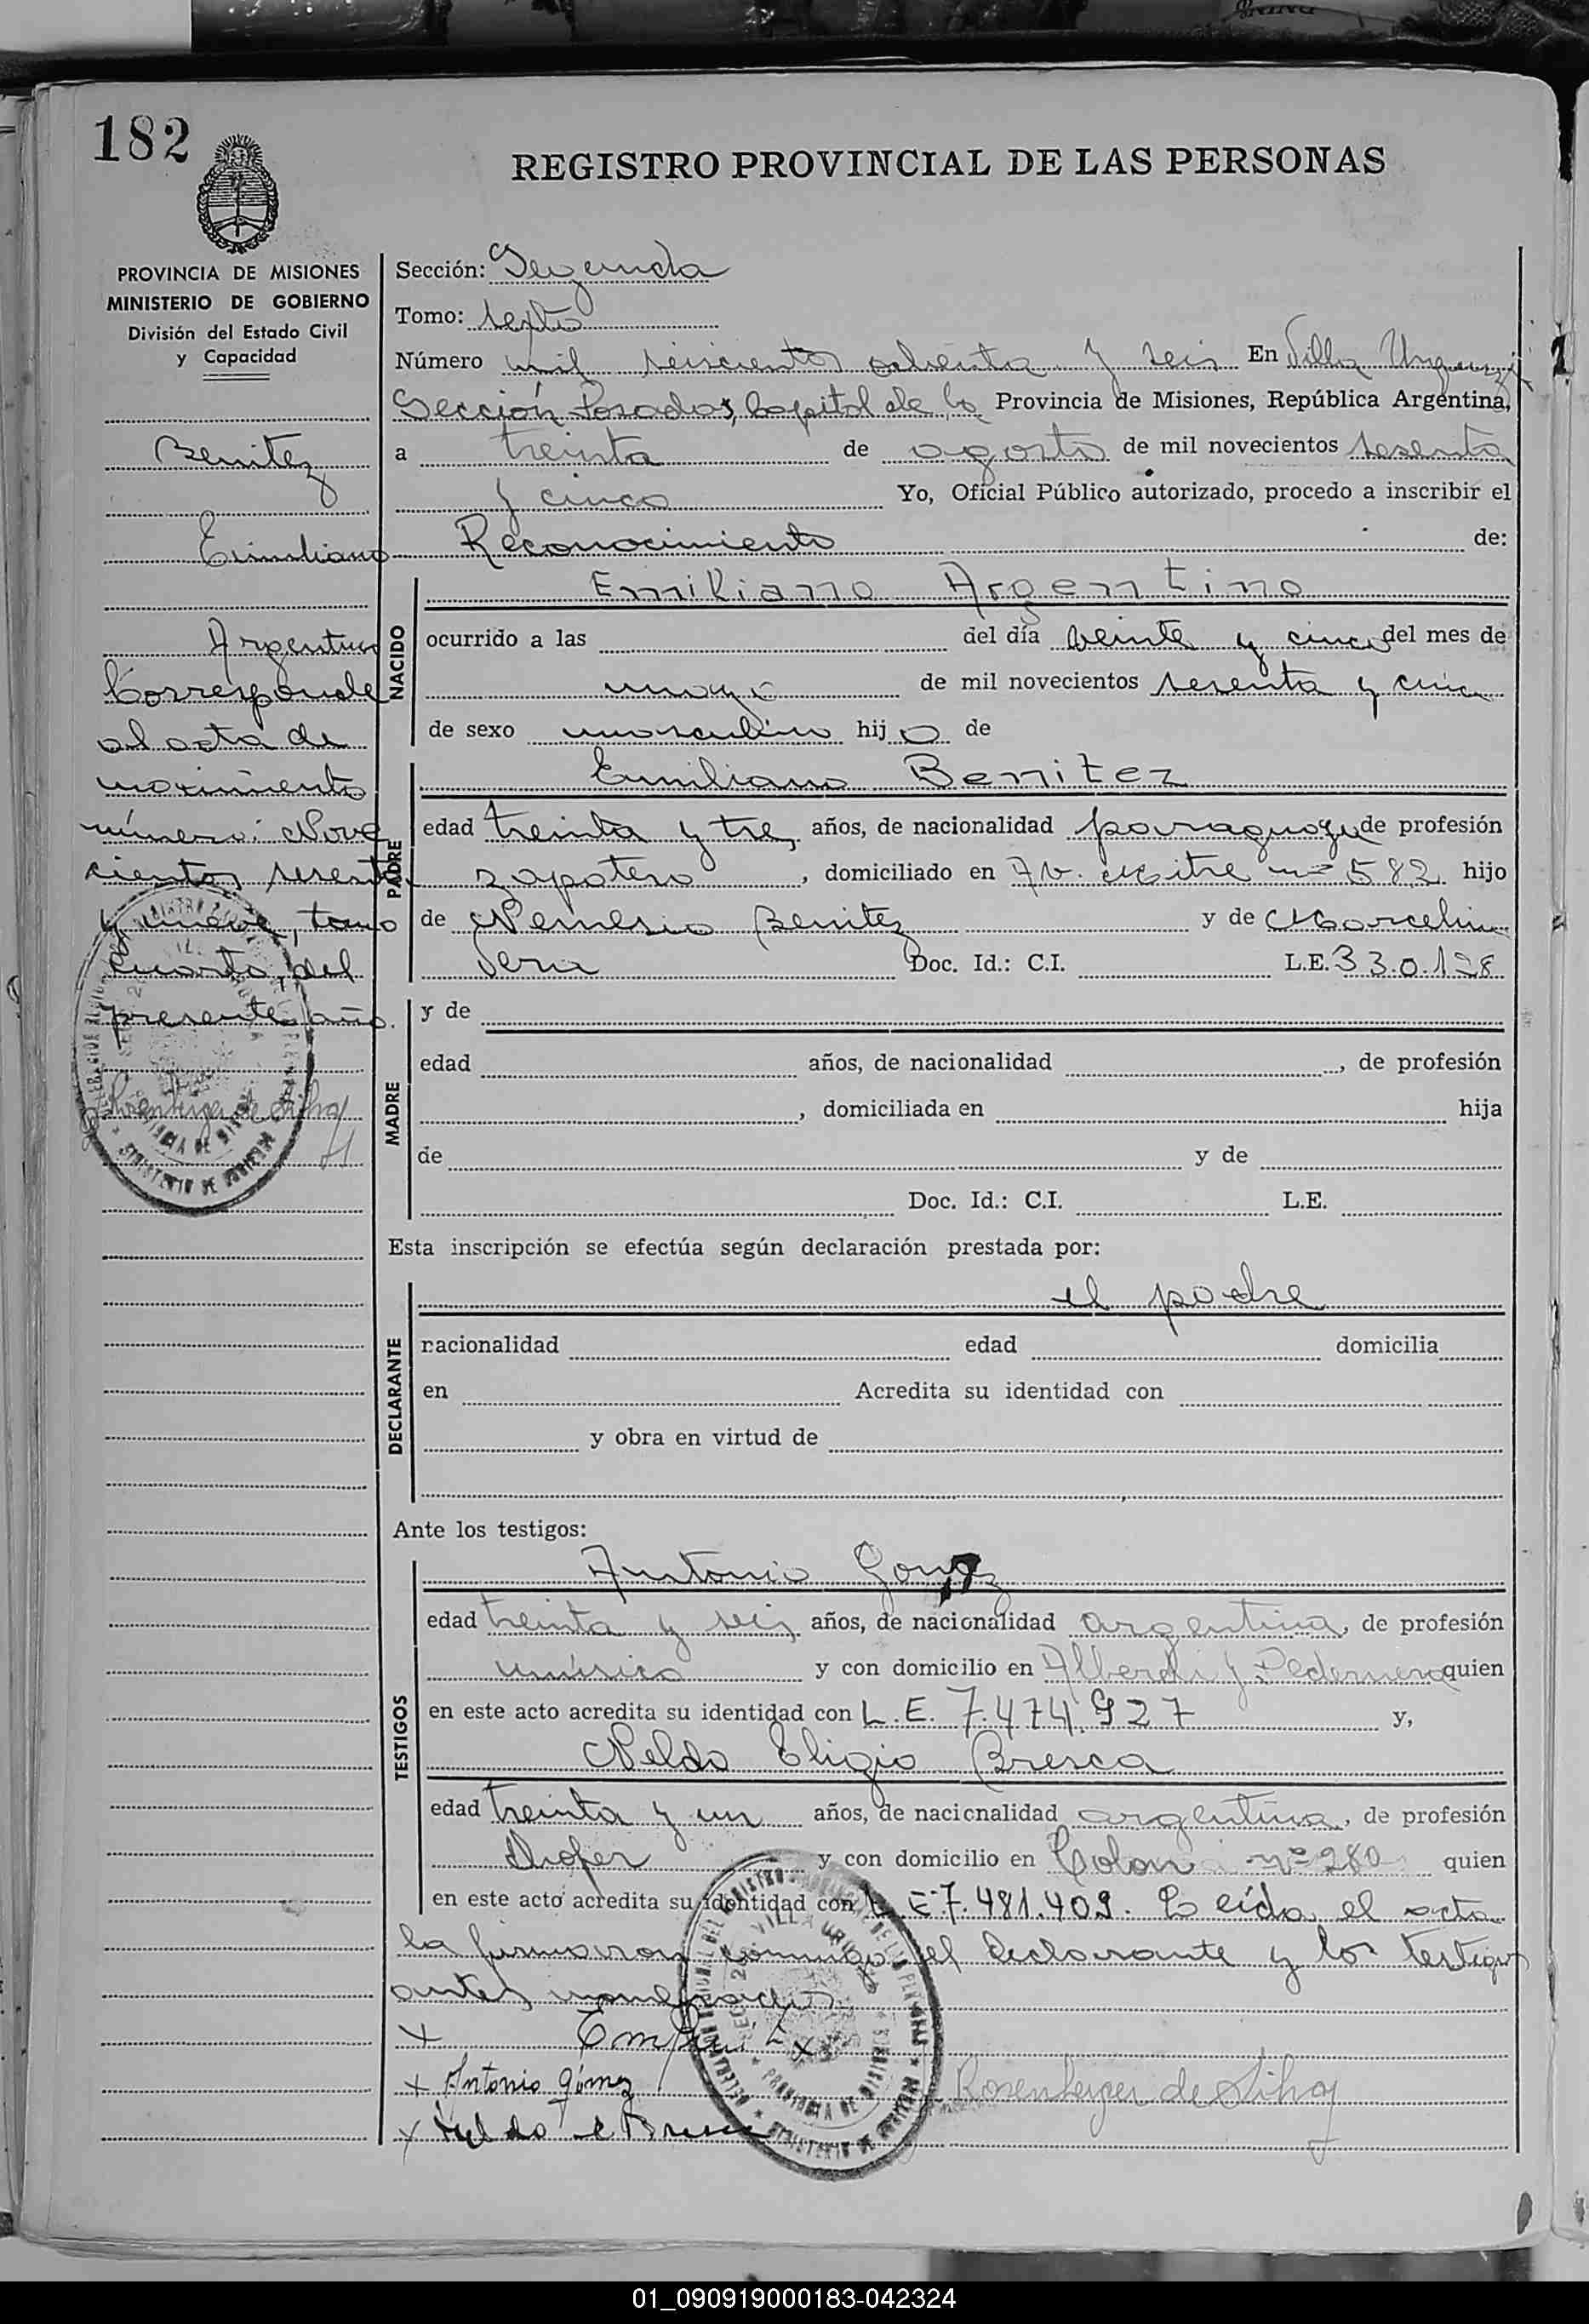 182
REGISTRO PROVINCIAL DE LAS PERSONAS
PROVINCIA DE MISIONES
MINISTERIO DE GOBIERNO
División del Estado Civil
y Capacidad
Benitez
Emiliano
Argentino
Corresponde
al acta de
nacimiento
número: Nove
cientos sesenta
y nueve, tomo
cuarto, del
presente año.
Rosenberger de Silva
Sección: Segunda
Tomo: sexto
Número mil seiscientos ochenta y seis En Villa Urquiza
Sección Posadas, Capital de la Provincia de Misiones, República Argentina,
a treinta de agosto de mil novecientos sesenta
y cinco Yo, Oficial Público autorizado, procedo a inscribir el
Reconocimiento de:
NACIDO
Emiliano Argentino
ocurrido a las del día veinte y cinco del mes de
mayo de mil novecientos sesenta y cinco
de sexo masculino hijo de
PADRE
Emiliano Benitez
edad treinta y tres años, de nacionalidad paraguaya de profesión
zapatero, domiciliado en Av. Mitre nº 582 hijo
de Nemesio Benitez y de Marcelina
Vera Doc. Id.: C.I. L.E. 330.128
MADRE
y de
edad años, de nacionalidad , de profesión
, domiciliada en hija
de y de
Doc. Id.: C.I. L.E.
Esta inscripción se efectúa según declaración prestada por:
DECLARANTE
el padre
nacionalidad edad domicilia
en Acredita su identidad con
y obra en virtud de
Ante los testigos:
TESTIGOS
Antonio Gomez
edad treinta y seis años, de nacionalidad argentina, de profesión
músico y con domicilio en Alberdi y Pedernera quien
en este acto acredita su identidad con L.E. 7.474.927 y,
Neldo Eligio Bresca
edad treinta y un años, de nacionalidad argentina, de profesión
Chofer y con domicilio en Colon nº 280 quien
en este acto acredita su identidad con L.E 7.481.409. Leída el acta
la firmaron conmigo el declarante y los testigos
antes nombrados
+
+ Antonio Gómez
Rosenberger de Silva
01_090919000183-042324